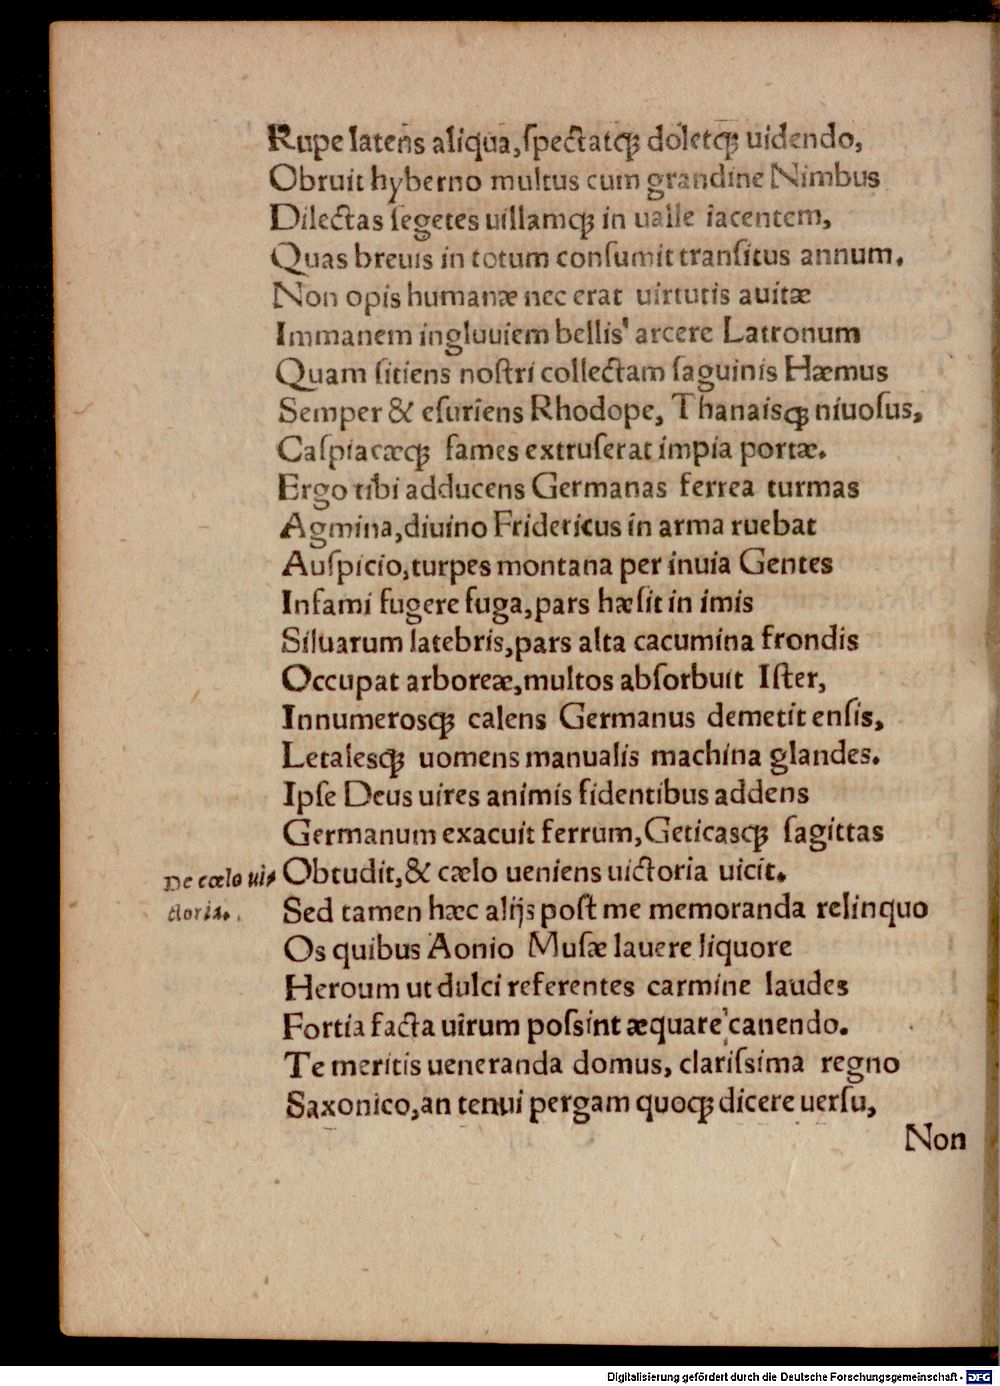 Rupe latens aliqua, ſpectatqꝫ doletqꝫ uidendo,
Obruit hyberno multus cum grandine Nimbus
Dilectas ſegetes uillamqꝫ in ualle iacentem,
Quas breuis in totum conſumit tranſitus annum.
Non opis humanæ nec erat uirtutis auitæ
Immanem ingluuiem bellis arcere Latronum
Quam ſitiens noſtri collectam ſaguinis Hæmus
Semper & eſuriens Rhodope, Thanaisqꝫ niuoſus,
Caſpiacæqꝫ fames extruſerat impia portæ.
Ergo tibi adducens Germanas ferrea turmas
Agmina, diuino Fridericus in arma ruebat
Auſpicio, turpes montana per inuia Gentes
Infami fugere fuga, pars hæſit in imis
Siluarum latebris, pars alta cacumina frondis
Occupat arboreæ, multos abſorbuit Iſter,
Innumerosqꝫ calens Germanus demetit enſis,
Letalesqꝫ uomens manualis machina glandes.
Ipſe Deus uires animis fidentibus addens
Germanum exacuit ferrum, Geticasqꝫ ſagittas
De cœlo ui⸗ Obtudit, & cælo ueniens uictoria uicit.
ctoria. Sed tamen hæc alijs poſt me memoranda relinquo
Os quibus Aonio Muſæ lauere liquore
Heroum ut dulci referentes carmine laudes
Fortia facta uirum poſsint æquare canendo.
Te meritis ueneranda domus, clariſsima regno
Saxonico, an tenui pergam quoqꝫ dicere uerſu,
Non
Digitalisierung gefördert durch die Deutsche Forschungsgemeinschaft - DFG